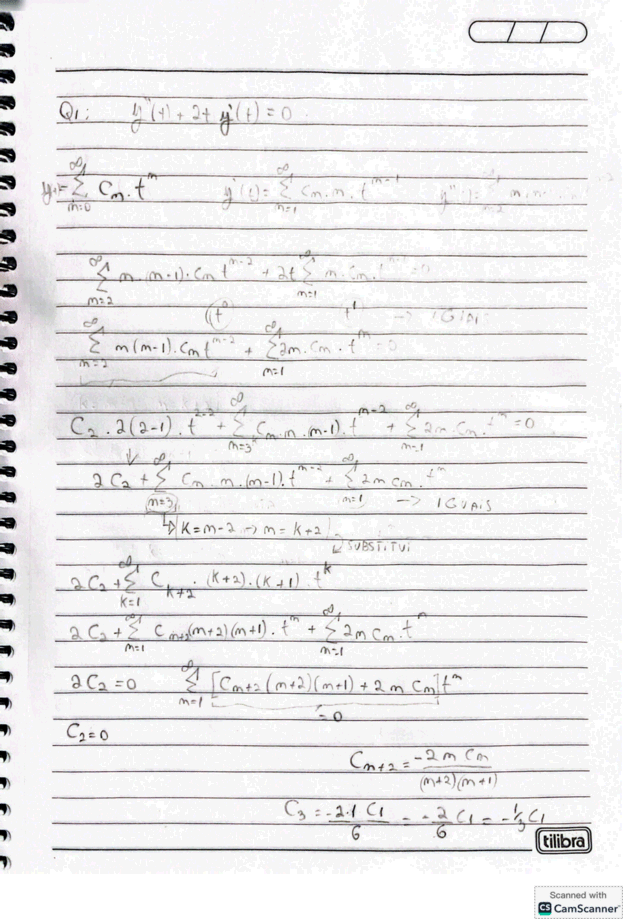 Q1: y''(t) + 2t y'(t) = 0
y(t) = ∞ Σ m=0 Cm . t^m y'(t) = ∞ Σ m=1 Cm . m . t^(m-1)
∞ Σ m=2 m . (m-1) . Cm t^(m-2) + 2t ∞ Σ m=1 m . Cm . t^(m-1) = 0
t⁰ t¹ → IGUAIS
∞ Σ m=2 m(m-1) . Cm t^(m-2) + ∞ Σ m=1 2m . Cm . t^m = 0
C2 . 2(2-1) . t^(2-2) + ∞ Σ m=3 Cm . m . (m-1) . t^(m-2) + ∞ Σ m=1 2m . Cm . t^m = 0
↓
2C2 + ∞ Σ m=3 Cm . m . (m-1) . t^(m-2) + ∞ Σ m=1 2m Cm . t^m → IGUAIS
↳ K = m-2 → m = K+2
↙ SUBSTITUI
2C2 + ∞ Σ K=1 C_(K+2) . (K+2) . (K+1) . t^K
2C2 + ∞ Σ m=1 C_(m+2) (m+2)(m+1) . t^m + ∞ Σ m=1 2m Cm . t^m
2C2 = 0 ∞ Σ m=1 [C_(m+2) (m+2)(m+1) + 2m Cm] t^m
= 0
C2 = 0
C_(m+2) = -2m Cm / (m+2)(m+1)
C3 = -2.1 C1 / 6 = -2/6 C1 = -1/3 C1
tilibra
Scanned with
CS CamScanner